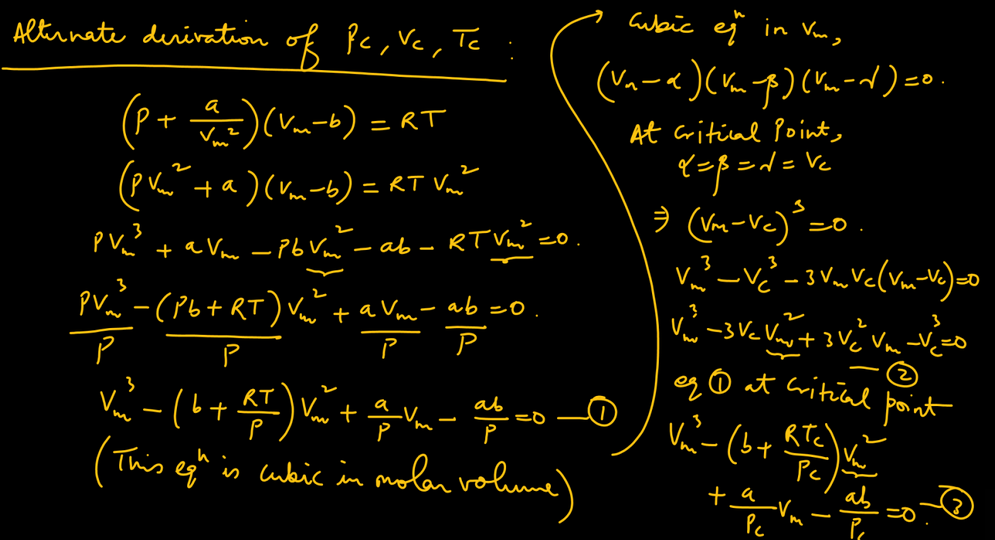 Alternate derivation of Pc, Vc, Tc :
(P + a/Vm²)(Vm-b) = RT
(PVm² + a)(Vm-b) = RT Vm²
PVm³ + aVm - PbVm² - ab - RTVm² = 0.
PVm³/P - (Pb+RT)/P Vm² + aVm/P - ab/P = 0.
Vm³ - (b + RT/P)Vm² + a/P Vm - ab/P = 0 — ①
(This eqⁿ is cubic in molar volume)
Cubic eqⁿ in Vm,
(Vm-α)(Vm-β)(Vm-γ) = 0.
At Critical Point,
α=β=γ=Vc
⇒ (Vm-Vc)³ = 0.
Vm³ - Vc³ - 3VmVc(Vm-Vc) = 0
Vm³ - 3VcVm² + 3Vc²Vm - Vc³ = 0
— ②
eq ① at critical point
Vm³ - (b + RTc/Pc)Vm²
+ a/Pc Vm - ab/Pc = 0. — ③